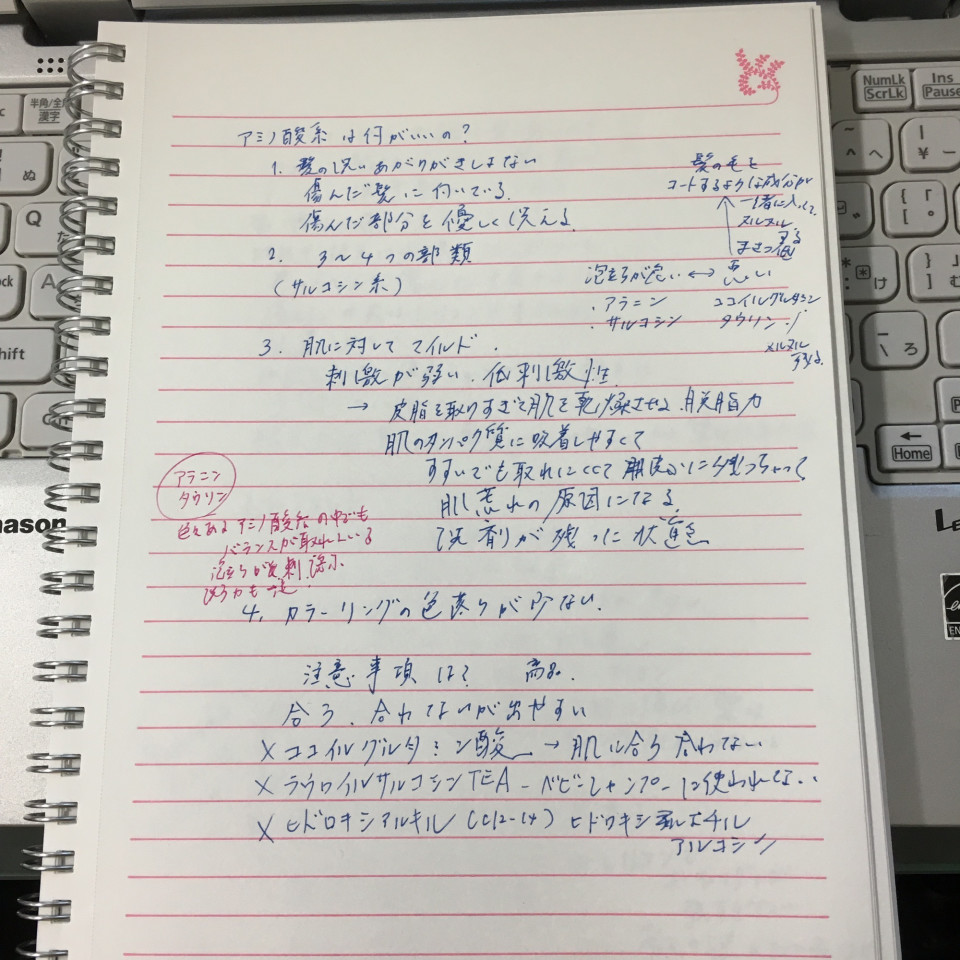 アミノ酸系は何がいいの?
1. 髪の洗いあがりがきしまない
傷んだ髪に付いている
傷んだ部分を優しく洗える
2. 3〜4つの部類
(サルコシン系)
髪の毛を
コートするような成分が
一緒に入って
ヌルヌル
まさつ低
泡立ちが良い ↔ 悪い
・アラニン ココイルグルタミン
・サルコシン タウリン
ヌルヌル
する
3. 肌に対してマイルド.
刺激が弱い. 低刺激性
→ 皮脂を取りすぎて肌を乾燥させる 脱脂力
肌のタンパク質に吸着しやすくて
すすいでも取れにくくて
肌荒れの原因になる
洗剤が残った状態
アラニン
タウリン
色々あるアミノ酸系の中でも
バランスが取れている
泡立ちが良
4. カラーリングの色落ちが少ない.
注意事項は? 高品.
合う、合わないが出やすい
× ココイルグルタミン酸 → 肌に合う合わない
× ラウロイルサルコシンTEA - ベビーシャンプーに使われてない
× ヒドロキシアルキル(C12-14)ヒドロキシエチル
アルコシン
半角/全角
漢字
NumLk
ScrLk
Ins
Pause
Home
Shift
Q
A
ぬ
た
け
む
ろ